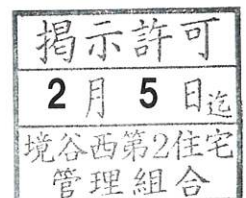 掲示許可
2月 5 日迄
境谷西第2住宅
管理組合